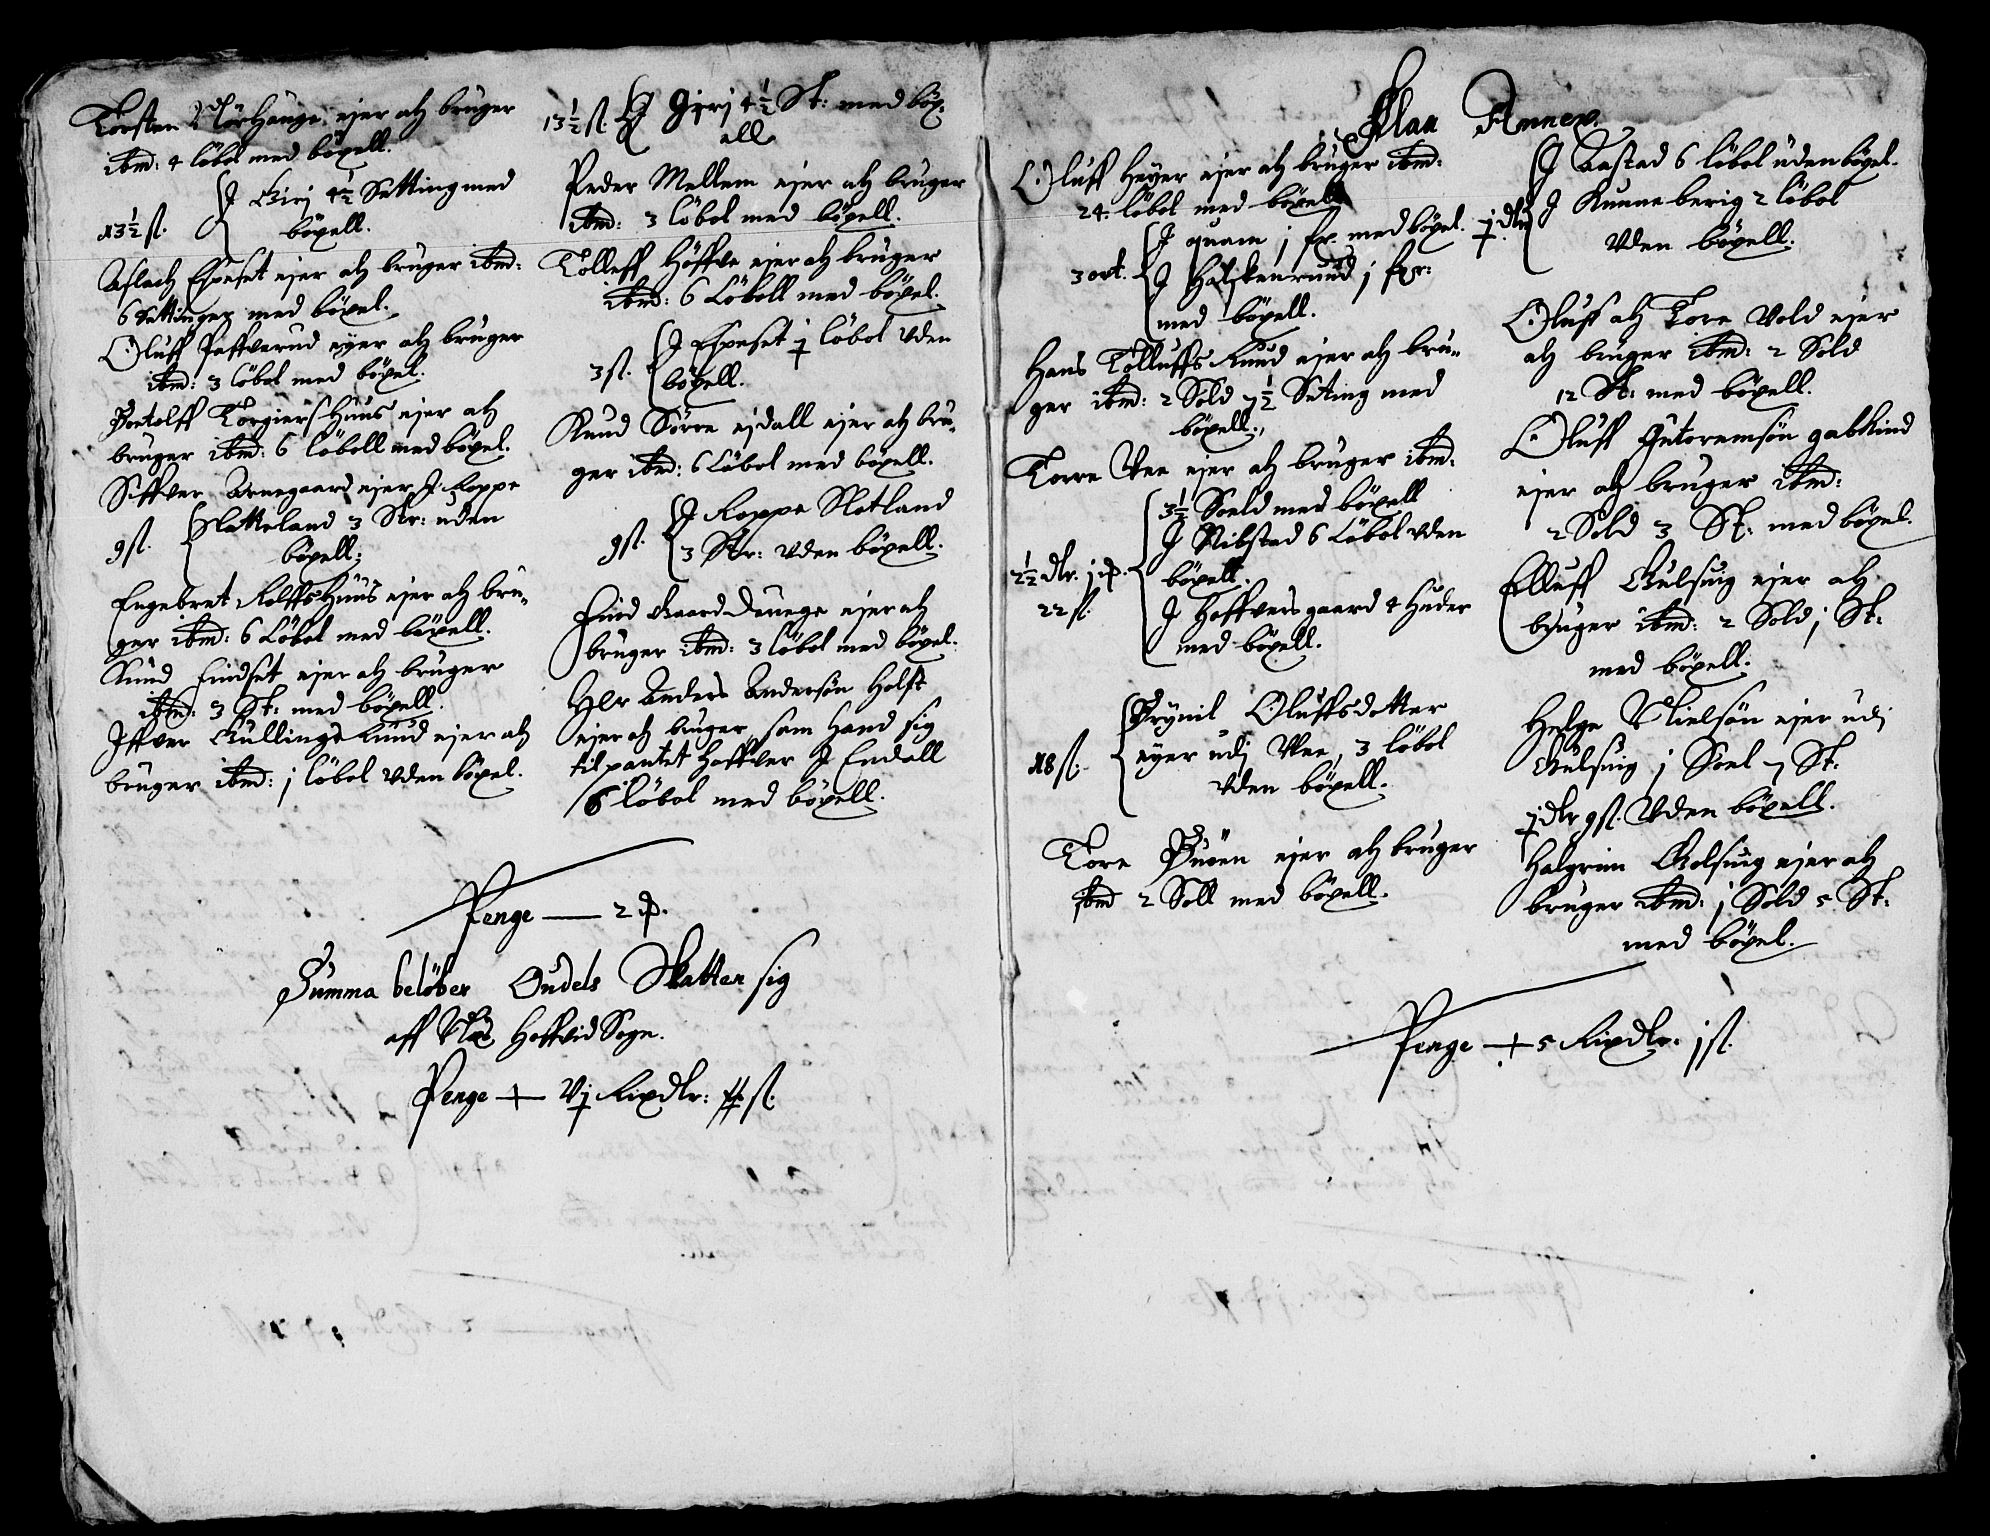 Torsten Nörhauge ejer och bruger
ibm: 4 löbol med böxell.
13½ s. J Girj 4½ Setting med
böxell.
Aslach Espeset ejer och bruger ibm:
6 Settinger med böxel.
Oluff ejer och bruger
ibm: 3 löbol med böxel.
Botolff Torgiers Huus ejer och
bruger ibm: 6 löboll med böxel.
Siffver Arnegaard ejer J Roppe
9 s. Slatteland 3 Str: uden
böxell:
Engebret Rolffshuus ejer och bru„
ger ibm: 6 Löbol med böxell.
Knud Findset ejer och bruger
ibm: 3 St: med böxell.
Iffver Gullings Lund ejer och
bruger ibm: j löbol vden böxel.
13½ s. J Girj 4½ St: med böx„
ell
Peder Mellem ejer och bruger
ibm: 3 löbol med böxell.
Tolleff Höffve ejer och bruger
ibmd: 6 Löboll med böxel.
3 s. J Espeset j löbol vden
böxell.
Knud Sörre ejdall ejer och bru„
ger ibm: 6 Löbol med böxell.
J Roppe Slotland
9 s. 3 Str: vden böxell.
Find Gaard ejer och
bruger ibm: 3 löbol med böxel.
Hr Anders Andersön Holst
ejer och bruger som hand sig
tilpantet haffver J Endall
6 löbol med böxell.
Penge — 2
Summa belöber Oudels Skatten sig
aff Hoffvid Sogn.
Penge — Vj Rixdlr: s.
Flaa Annex.
Oluff Heyer ejer och bruger ibm:
24 löbol med böxell
J quam j fr. med böxel.
3 ort. J Halskenrund j fr:
med böxell.
Hans Tolluffs Rund ejer och bru„
ger ibm: 2 Sold 7½ Seting med
böxell.
Torre Vee ejer och bruger ibm:
3½ Sold med böxell
J Stibstad 6 Löbol vden
2½ dlr. böxell.
22 s. J Hoffversgaard 4 Huder
med böxell.
Brynil Oluffsdotter
18 s. eyer udj Vee, 3 löbol
vden böxell.
Tore ejer och bruger
ibm 2 Soll med böxell.
J Aastad 6 löbol uden böxel.
j dlr J Runneberig 2 löbol
Vden böxell.
Oluff och Tore Vold ejer
och bruger ibm: 2 Sold
12 St: med böxell.
Oluff Gutormsön
ejer och bruger ibm:
2 Sold 3 St: med böxel.
Elluff Gulsuig ejer och
bruger ibm: 2 Sold j St:
med böxell.
Helge Nielsön ejer udj
Gulsuig j Soel 7 St:
j dlr 9 s. Vden böxell.
Halgrim Golsuig ejer och
bruger ibm: j Sold 5 St:
med böxel.
Penge — 5 Rixdlr. j s.